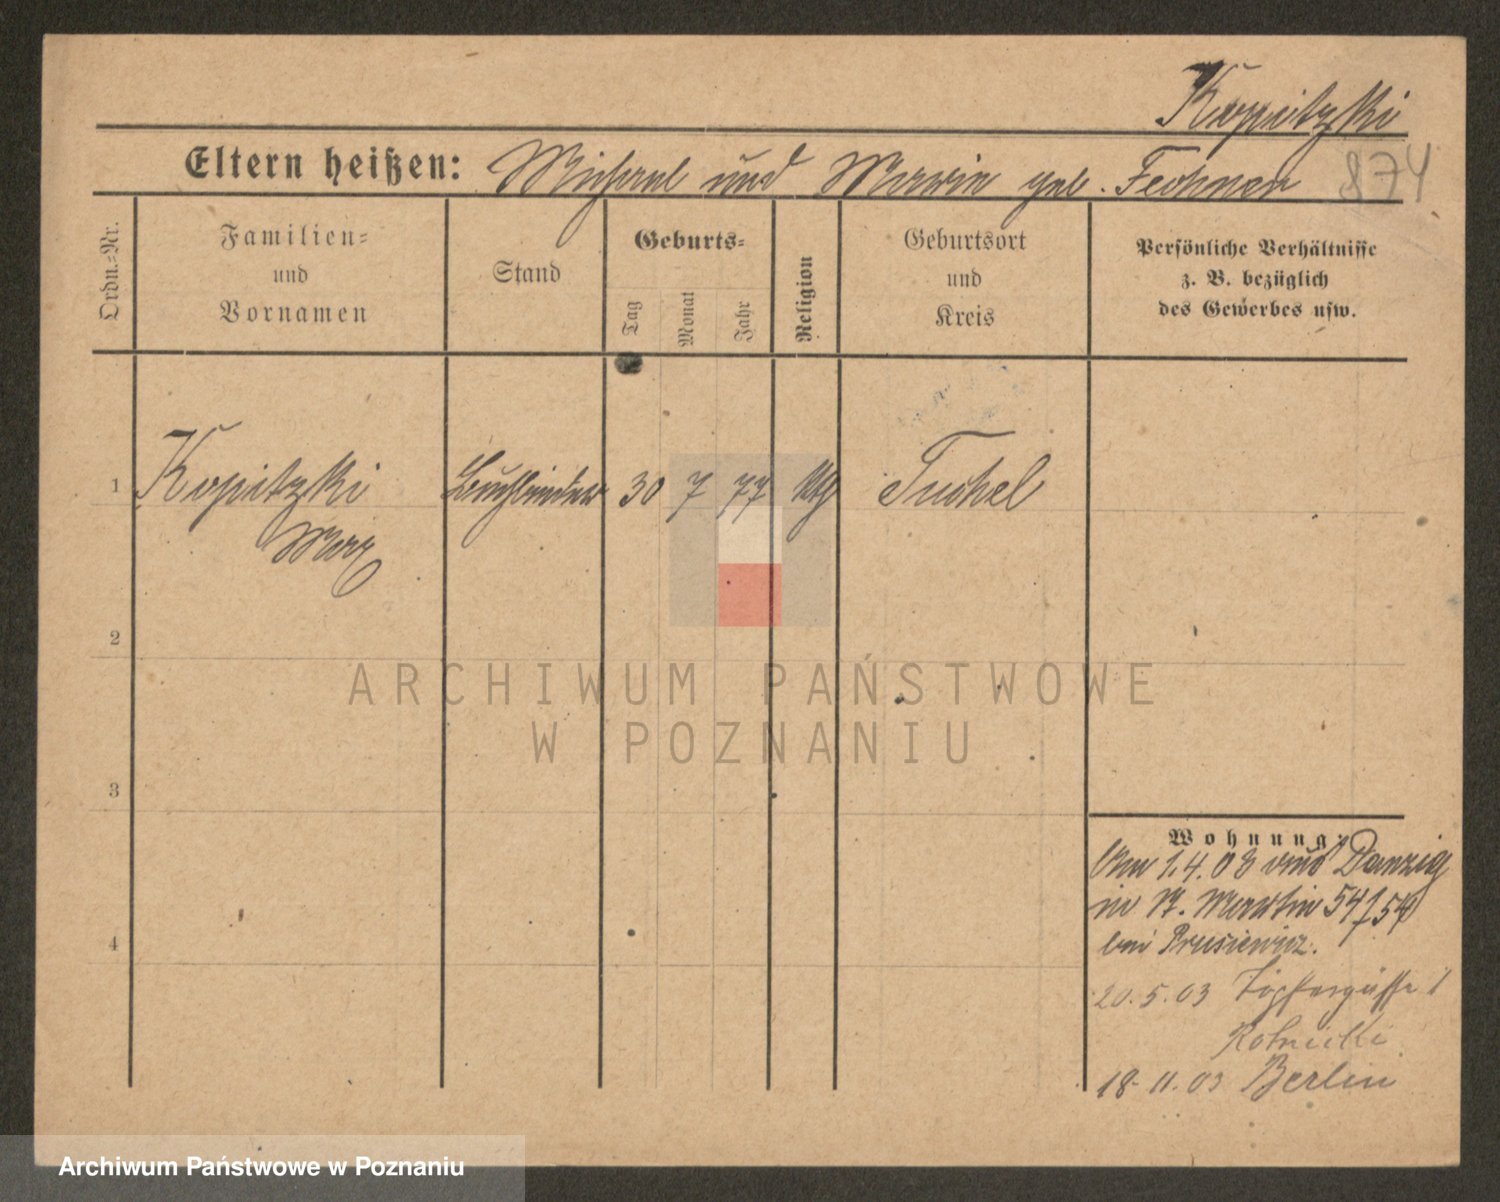 Kopitzki
Eltern heißen: Michael und Marie geb. Fechner 874
Ordn.=Nr.
Familien=
und
Vornamen
Stand
Geburts=
Tag
Monat
Jahr
Religion
Geburtsort
und
Kreis
Persönliche Verhältnisse
z. B. bezüglich
des Gewerbes usw.
1 Kopitzki Buchbinder 30 7 77 Tuchel
Max
2
3
4
Wohnung:
Am 1.4.03 aus Danzig
in St. Martin 54/54
bei Prusiewicz.
20.5.03 Töpfergasse 1
18.11.03 Berlin
ARCHIWUM PAŃSTWOWE
W POZNANIU
Archiwum Państwowe w Poznaniu